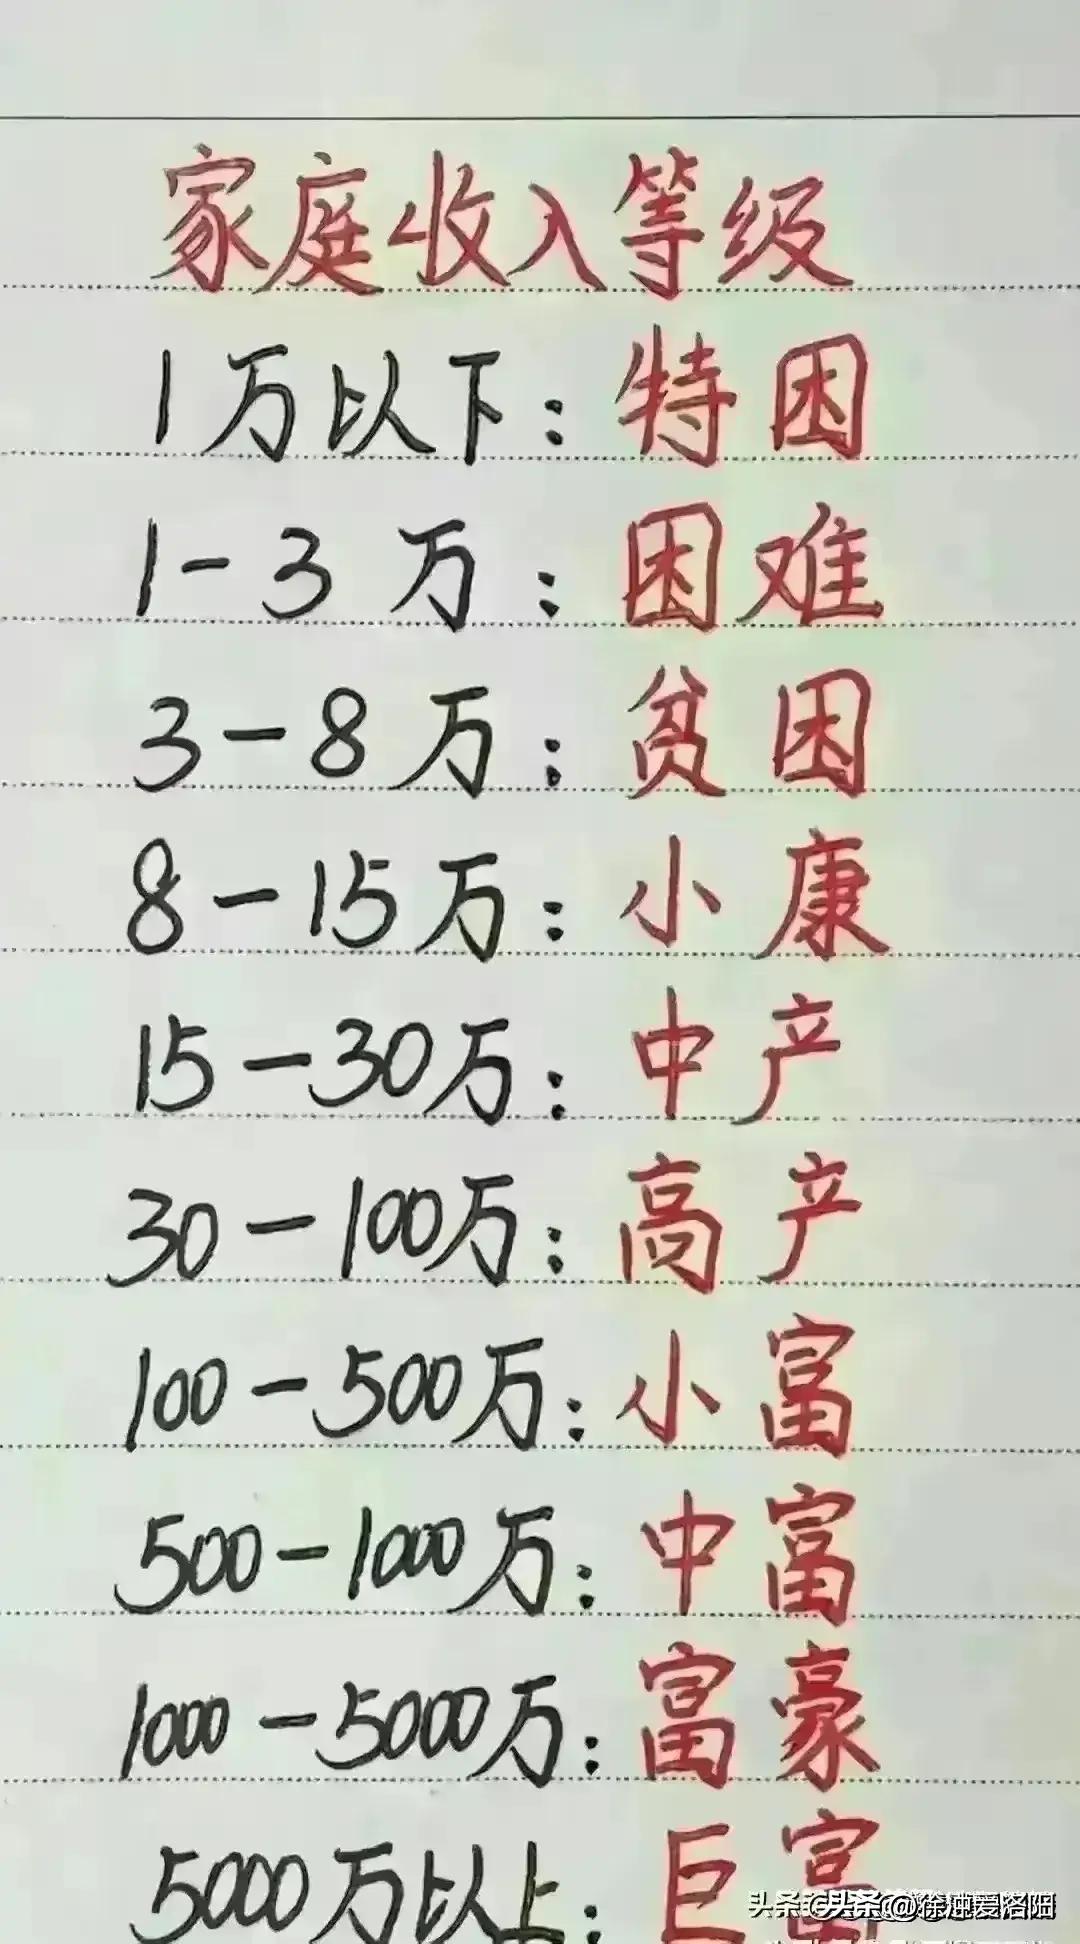 家庭收入等级
1万以下：特困
1-3万：困难
3-8万：贫困
8-15万：小康
15-30万：中产
30-100万：高产
100-500万：小富
500-1000万：中富
1000-5000万：富豪
5000万以上：巨富
头条@徐冲爱洛阳